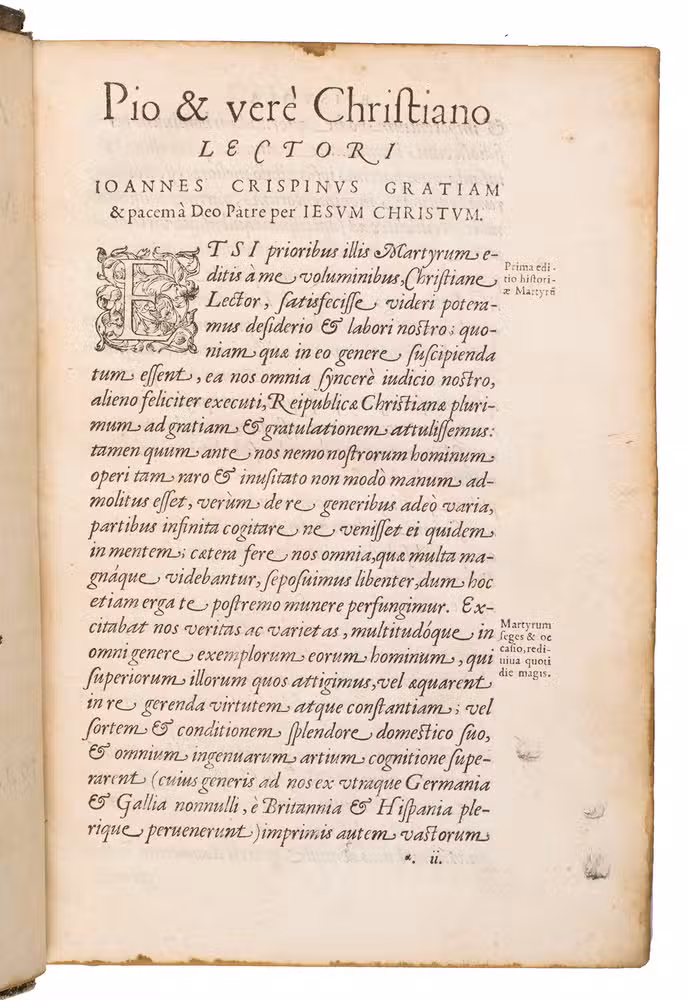 Pio & verè Chriſtiano
LECTORI
IOANNES CRISPINVS GRATIAM
& pacem à Deo Patre per IESVM CHRISTVM.
ETSI prioribus illis Martyrum e-
ditis à me voluminibus, Chriſtiane
Lector, ſatisfeciſſe videri potera-
mus deſiderio & labori noſtro; quo-
niam quæ in eo genere ſuſcipienda
tum eſſent, ea nos omnia ſyncerè iudicio noſtro,
alieno feliciter executi, Reipublicæ Chriſtianæ pluri-
mum ad gratiam & gratulationem attuliſſemus:
tamen quum ante nos nemo noſtrorum hominum
operi tam raro & inuſitato non modò manum ad-
molitus eſſet, verùm de re generibus adeò varia,
partibus infinita cogitare ne veniſſet ei quidem
in mentem; cætera fere nos omnia, quæ multa ma-
gnáque videbantur, ſepoſuimus libenter, dum hoc
etiam erga te poſtremo munere perfungimur. Ex-
citabat nos veritas ac varietas, multitudóque in
omni genere exemplorum eorum hominum, qui
ſuperiorum illorum quos attigimus, vel æquarent
in re gerenda virtutem atque conſtantiam; vel
ſortem & conditionem ſplendore domeſtico ſuo,
& omnium ingenuarum artium cognitione ſupe-
rarent (cuius generis ad nos ex vtraque Germania
& Gallia nonnulli, è Britannia & Hiſpania ple-
rique peruenerunt) imprimis autem vaſtorum
*. ii.
Prima edi-
tio hiſtori-
æ Martyrū
Martyrum
ſeges & oc
caſio, redi-
uiua quoti
die magis.